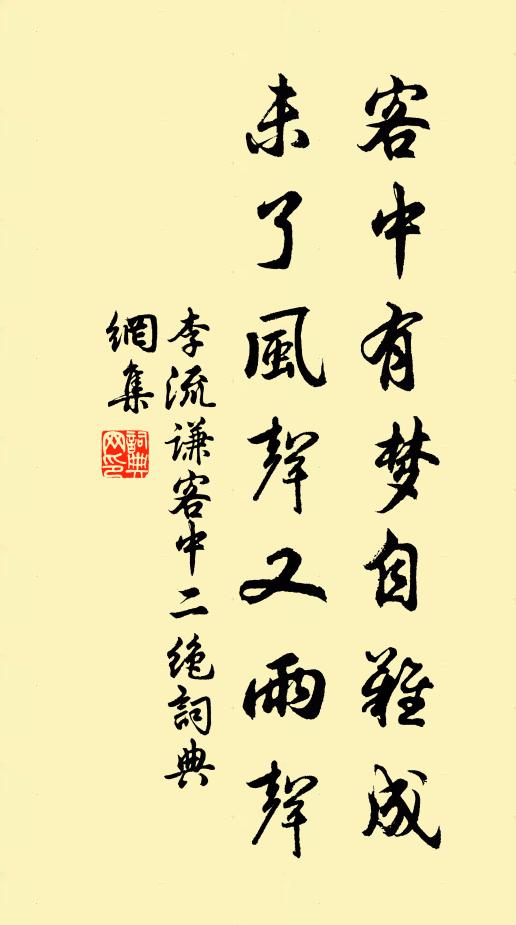 客中有梦自難成
未了風聲又雨聲
李流谦客中二绝詞典
網集
詞典
网印